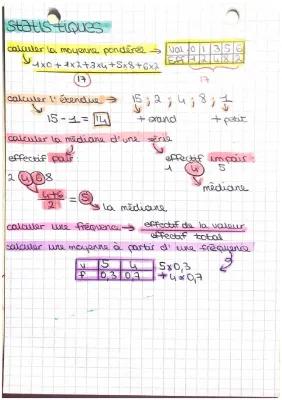 STATISTIQUES
calculer la moyenne pondérée → val 0 1 3 5 6
Eff 1 2 4 8 2
1x0 + 1x2 + 3x4 + 5x8 + 6x2
17 17
calculer l'étendue → 15 ; 2 ; 4 ; 8 ; 1
15 - 1 = 14 + grand + petit
calculer la médiane d'une série
effectif pair effectif impair
2 4 6 8 1 4 5
4+6 médiane
2 = 5 la médiane
calculer une fréquence → effectif de la valeur
effectif total
calculer une moyenne à partir d'une fréquence
v 5 4 5x0,3
f 0,3 0,7 + 4x0,7